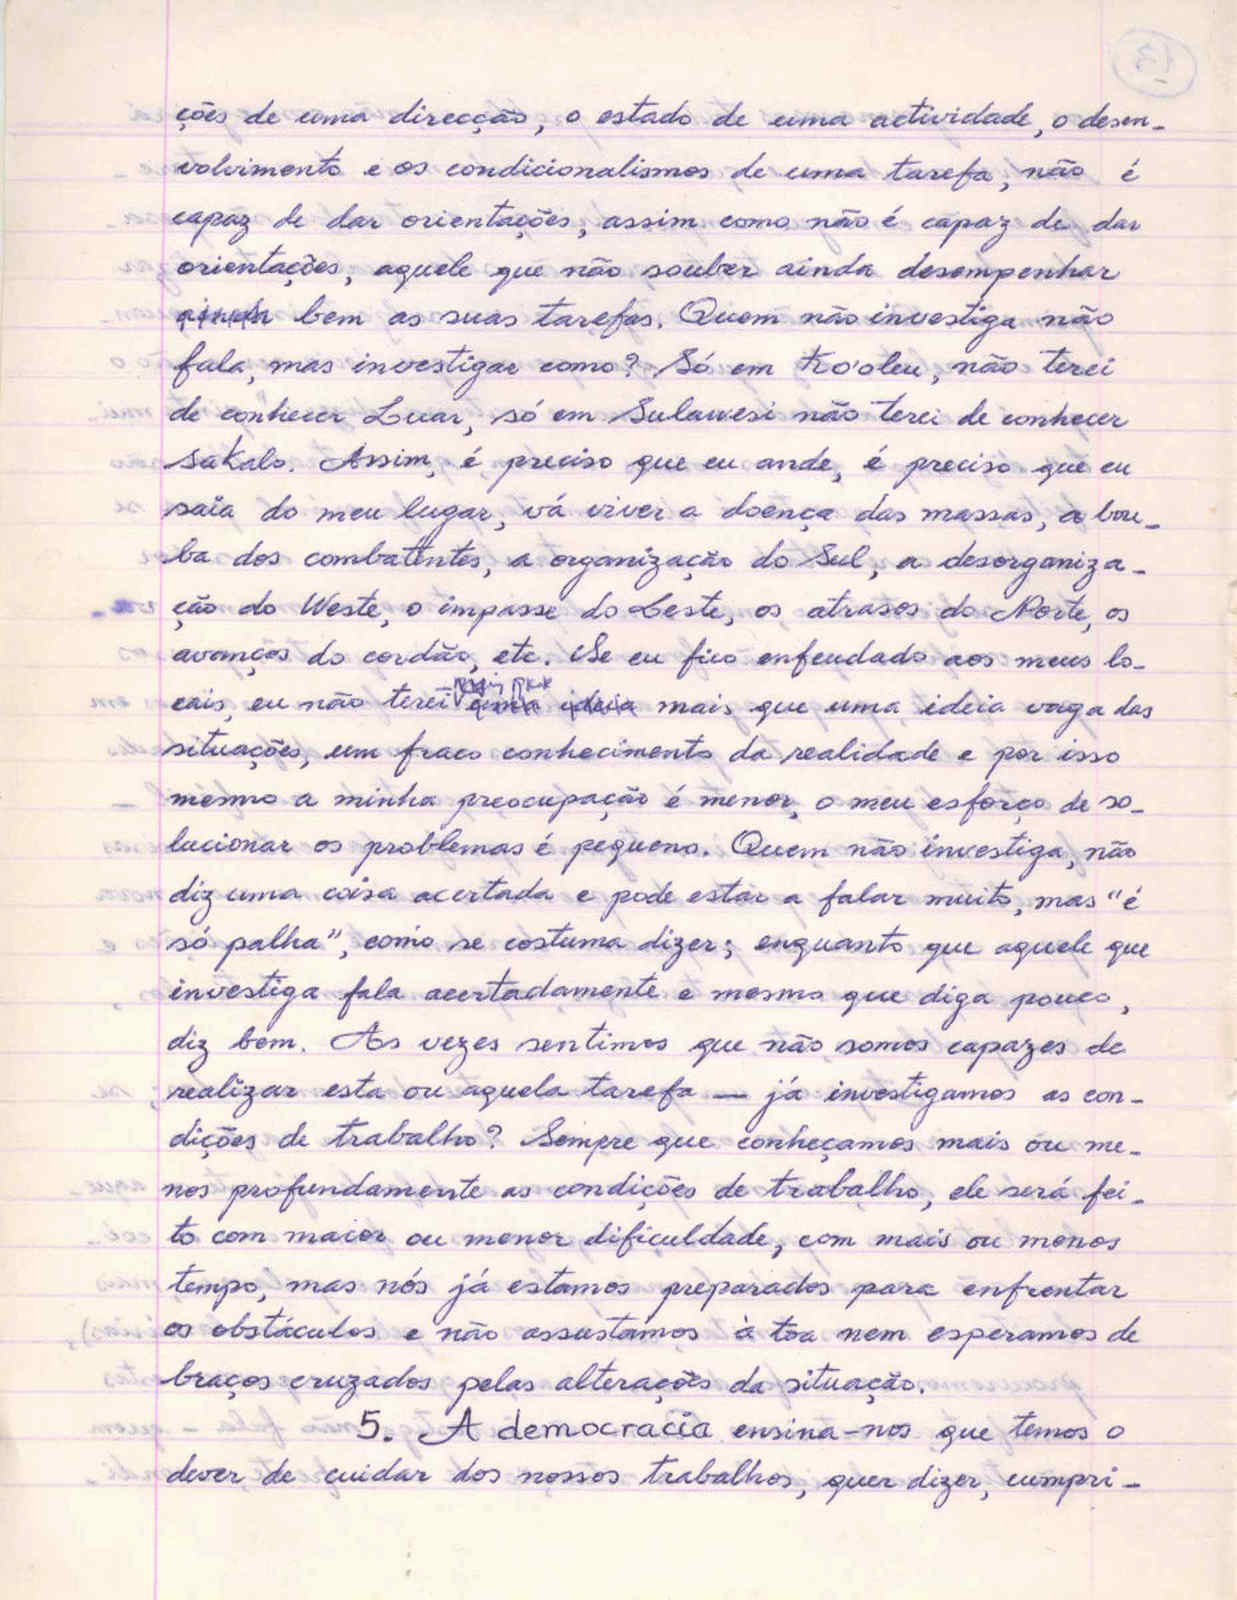 13
ções de uma direcção, o estado de uma actividade, o desen-
volvimento e os condicionalismos de uma tarefa, não é
capaz de dar orientações, assim como não é capaz de dar
orientações, aquele que não souber ainda desempenhar
bem as suas tarefas. Quem não investiga não
fala, mas investigar como? Só em Ko'oleu, não terei
de conhecer Luar, só em Sulawesi não terei de conhecer
Sakalo. Assim, é preciso que eu ande, é preciso que eu
saia do meu lugar, vá viver a doença das massas, a bou-
ba dos combatentes, a organização do Sul, a desorganiza-
ção do Weste, o impasse do Leste, os atrasos do Norte, os
avanços do cordão, etc. Se eu fico enfeudado aos meus lo-
cais, eu não terei mais que uma ideia vaga das
situações, um fraco conhecimento da realidade e por isso
mesmo a minha preocupação é menor, o meu esforço de so-
lucionar os problemas é pequeno. Quem não investiga, não
diz uma coisa acertada e pode estar a falar muito, mas "é
só palha", como se costuma dizer; enquanto que aquele que
investiga fala acertadamente e mesmo que diga pouco,
diz bem. Às vezes sentimos que não somos capazes de
realizar esta ou aquela tarefa — já investigamos as con-
dições de trabalho? Sempre que conheçamos mais ou me-
nos profundamente as condições de trabalho, ele será fei-
to com maior ou menor dificuldade, com mais ou menos
tempo, mas nós já estamos preparados para enfrentar
os obstáculos e não assustamos à toa nem esperamos de
braços cruzados pelas alterações da situação.
5. A democracia ensina-nos que temos o
dever de cuidar dos nossos trabalhos, quer dizer, cumpri-